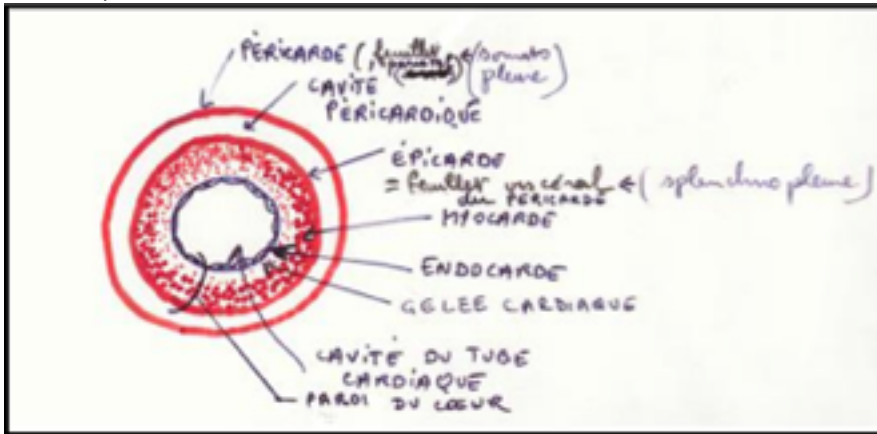 PÉRICARDE (feuillet (somato
pleure)
CAVITÉ
PÉRICARDIQUE
ÉPICARDE
= feuillet viscéral ← (splanchnopleure)
du PÉRICARDE
MYOCARDE
ENDOCARDE
GELEE CARDIAQUE
CAVITÉ DU TUBE
CARDIAQUE
PAROI DU COEUR